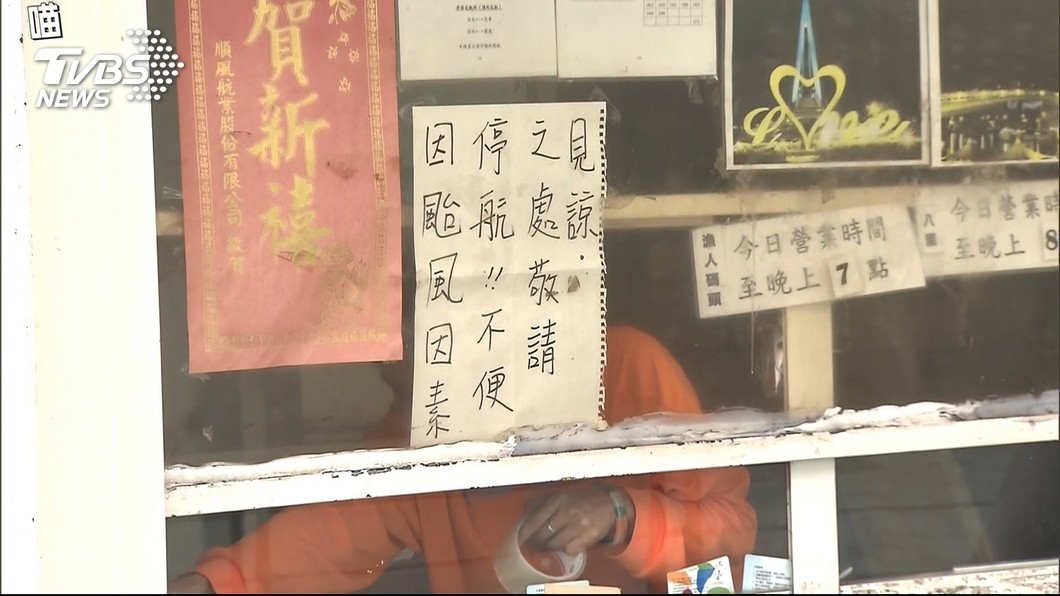 喵
TVBS
NEWS
賀新禧
順風航業股份有限公司 敬賀
因颱風因素
停航!!不便
之處敬請
見諒.
Love
漁人碼頭
今日營業時間
至晚上7點
八里
今日營業時
至晚上8